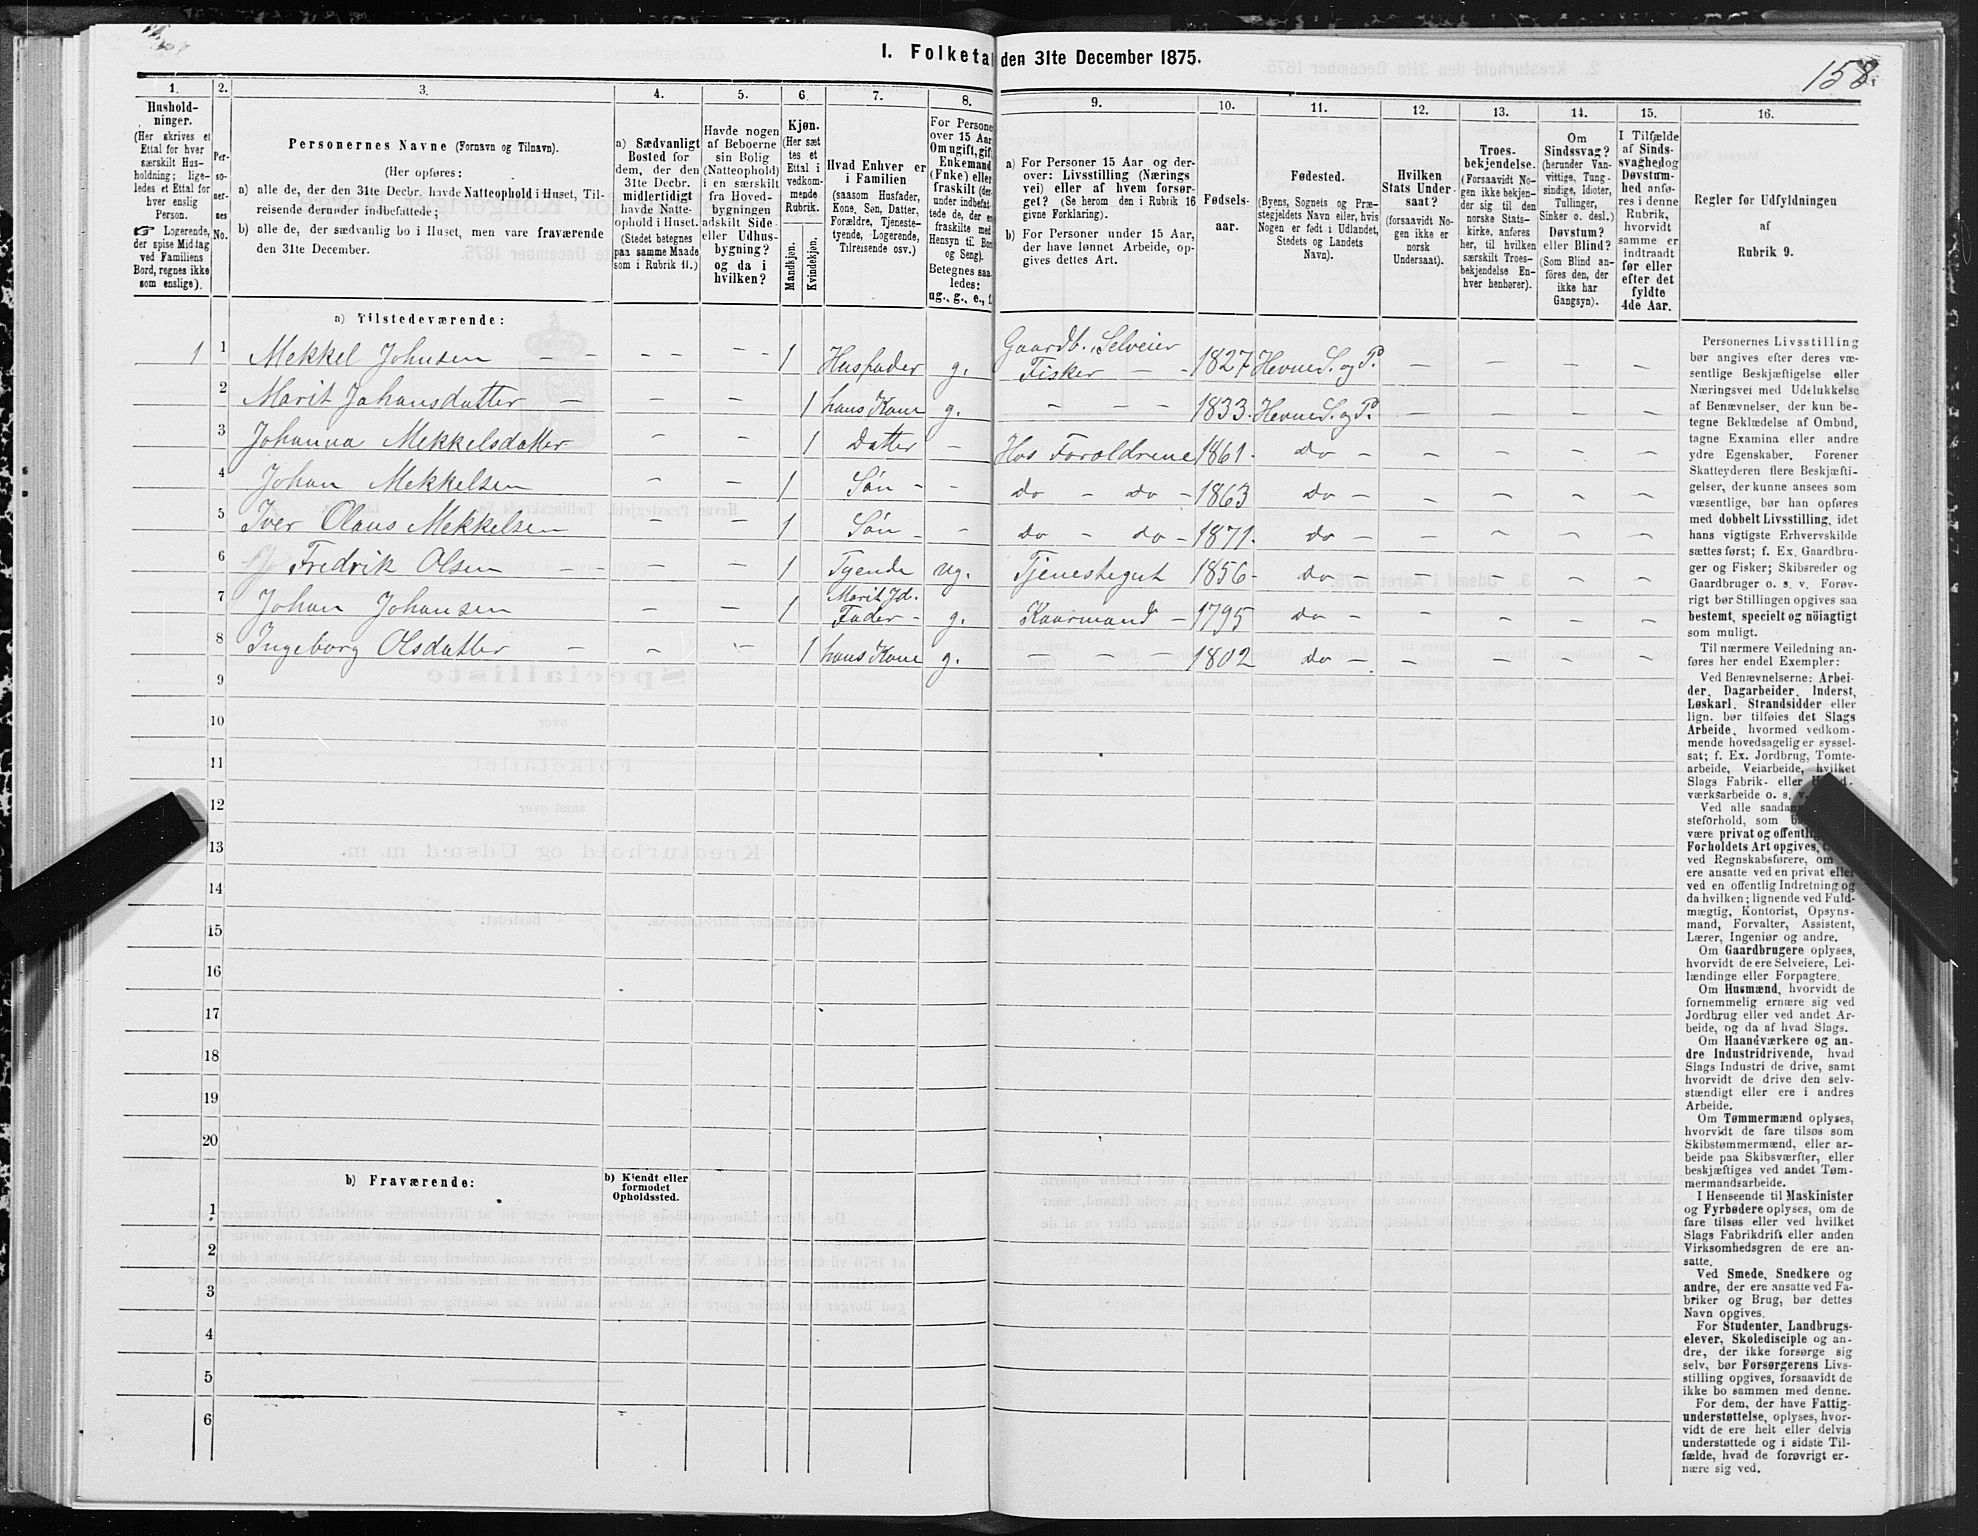 I. Folketal den 31te December 1875.
158.
1.
Hushold-
ninger.
(Her skrives et
Ettal for hver
særskilt Hus-
holdning; lige-
ledes et Ettal for
hver enslig
Person.
☞ Logerende,
der spise Middag
ved Familiens
Bord, regnes ikke
som enslige).
2.
Per-
so-
ner-
nes
No.
3.
Personernes Navne (Fornavn og Tilnavn).
(Her opføres:
a) alle de, der den 31te Decbr. havde Natteophold i Huset, Til-
reisende derunder indbefattede;
b) alle de, der sædvanlig bo i Huset, men vare fraværende
den 31te December.
4.
a) Sædvanligt
Bosted for
dem, der den
31te Decbr.
midlertidigt
havde Natte-
ophold i Huset.
(Stedet betegnes
paa samme Maade
som i Rubrik 11.)
5.
Havde nogen
af Beboerne
sin Bolig
(Natteophold)
i en særskilt
fra Hoved-
bygningen
adskilt Side-
eller Udhus-
bygning?
og da i
hvilken?
6.
Kjøn.
(Her sæt
tes et
Ettal i
vedkom-
mende
Rubrik.
Mandkjøn.
Kvindekjøn.
7.
Hvad Enhver er
i Familien
(saasom Husfader,
Kone, Søn, Datter,
Forældre, Tjeneste-
tyende, Logerende,
Tilreisende osv.)
8.
For Persone
over 15 Aar
Om ugift, gift
Enkemand
(Enke) eller
fraskilt (der-
under indbefat-
tede de, der er
fraskilte med
Hensyn til Bo
og Seng).
Betegnes saa-
ledes:
ug., g., e., f.
9.
a) For Personer 15 Aar og der-
over: Livsstilling (Nærings
vei) eller af hvem forsør-
get? (Se herom den i Rubrik 16
givne Forklaring).
b) For Personer under 15 Aar,
der have lønnet Arbeide, op-
gives dettes Art.
10.
Fødsels-
aar.
11.
Fødested.
(Byens, Sognets og Præ-
stegjeldets Navn eller, hvis
Nogen er født i Udlandet,
Stedets og Landets
Navn).
12.
Hvilken
Stats Under-
saat?
(forsaavidt No-
gen ikke er
norsk
Undersaat).
13.
Troes-
bekjendelse.
(Forsaavidt No-
gen ikke bekjen-
der sig til den
norske Stats-
kirke, anføres
her, til hvilken
særskilt Troes-
bekjendelse En-
hver henhører).
14.
Om
Sindssvag?
(herunder Van-
vittige, Tung-
sindige, Idioter,
Tullinger,
Sinker o. desl.)
Døvstum?
eller Blind?
(Som Blind an-
føres den, der
ikke har
Gangsyn).
15.
I Tilfælde
af Sinds-
svaghed og
Døvstum-
hed anfø-
res i denne
Rubrik,
hvorvidt
samme er
indtraadt
før eller
efter det
fyldte
4de Aar.
16.
Regler for Udfyldningen
af
Rubrik 9.
a) Tilstedeværende:
1 1 Mekkel Johnsen – – – – – – 1 Husfader g. Gaardb. Selveier Fisker – – 1827 Hevne S. og P. – – – –
2 Marit Johansdatter – – – – 1 hans Kone g. – – – 1833. Hevne S. og P. – – – –
3 Johanna Mekkelsdatter – – 1 Datter – Hos Foroldrene 1861. do – – – – –
4 Johan Mekkelsen – – 1 Søn – – do – do – 1863 do – – – – –
5 Iver Olaus Mekkelsen – – 1 Søn – – do – do – 1871. do – – – – –
6 Fredrik Olsen – – – – 1 Tyende ug. Tjenestegut 1856 – do – – – – –
7 Johan Johansen – – 1 Marit Jd. Fader – g. Kaarmand – 1795 do – – – – –
8 Ingeborg Olsdatter – – – 1 hans Kone g. – – – 1802 do – – – – –
9
10
11
12
13
14
15
16
17
18
19
20
b) Fraværende:
b) Kjendt eller
formodet
Opholdssted.
1
2
3
4
5
6
Personernes Livsstilling
bør angives efter deres væ-
sentlige Beskjæftigelse eller
Næringsvei med Udelukkelse
af Benævnelser, der kun be-
tegne Beklædelse af Ombud,
tagne Examina eller andre
ydre Egenskaber. Forener
Skatteyderen flere Beskjæfti-
gelser, der kunne ansees som
væsentlige, bør han opføres
med dobbelt Livsstilling, idet
hans vigtigste Erhvervskilde
sættes først; f. Ex. Gaardbru-
ger og Fisker; Skibsreder og
Gaardbruger o. s. v. Forøv-
rigt bør Stillingen opgives saa
bestemt, specielt og nöiagtigt
som muligt.
Til nærmere Veiledning an-
føres her endel Exempler:
Ved Benævnelserne: Arbei-
der, Dagarbeider, Inderst,
Løskarl, Strandsidder eller
lign. bør tilføies det Slags
Arbeide, hvormed vedkom-
mende hovedsagelig er syssel-
sat; f. Ex. Jordbrug, Tomte-
arbeide, Veiarbeide, hvilket
Slags Fabrik- eller
værksarbeide o. s. v.
Ved alle
steforhold, som
være privat og offentlig
Forholdets Art opgives,
ved Regnskabsførere, om
ere ansatte ved en privat eller
ved en offentlig Indretning og
da hvilken; lignende ved Fuld-
mægtig, Kontorist, Opsyns-
mand, Forvalter, Assistent,
Lærer, Ingeniør og andre.
Om Gaardbrugere oplyses,
hvorvidt de ere Selveiere, Lei-
lændinge eller Forpagtere.
Om Husmænd, hvorvidt de
fornemmelig ernære sig ved
Jordbrug eller ved andet Ar-
beide, og da af hvad Slags.
Om Haandværkere og an-
dre Industridrivende, hvad
Slags Industri de drive, samt
hvorvidt de drive den selv-
stændigt eller ere i andres
Arbeide.
Om Tømmermænd oplyses,
hvorvidt de fare tilsøs som
Skibstømmermænd, eller ar-
beide paa Skibsværfter, eller
beskjæftiges ved andet Tøm-
mermandsarbeide.
I Henseende til Maskinister
og Fyrbødere oplyses, om de
fare tilsøs eller ved hvilket
Slags Fabrikdrift eller anden
Virksomhedsgren de ere an-
satte.
Ved Smede, Snedkere og
andre, der ere ansatte ved Fa-
briker og Brug, bør dettes
Navn opgives.
For Studenter, Landbrugs-
elever, Skoledisciple og an-
dre, der ikke forsørge sig
selv, bør Forsørgerens Livs-
stilling opgives, forsaavidt de
ikke bo sammen med denne.
For dem, der have Fattig-
understøttelse, oplyses, hvor-
vidt de ere helt eller delvis
understøttede og i sidste Til-
fælde, hvad de forøvrigt er-
nære sig ved.